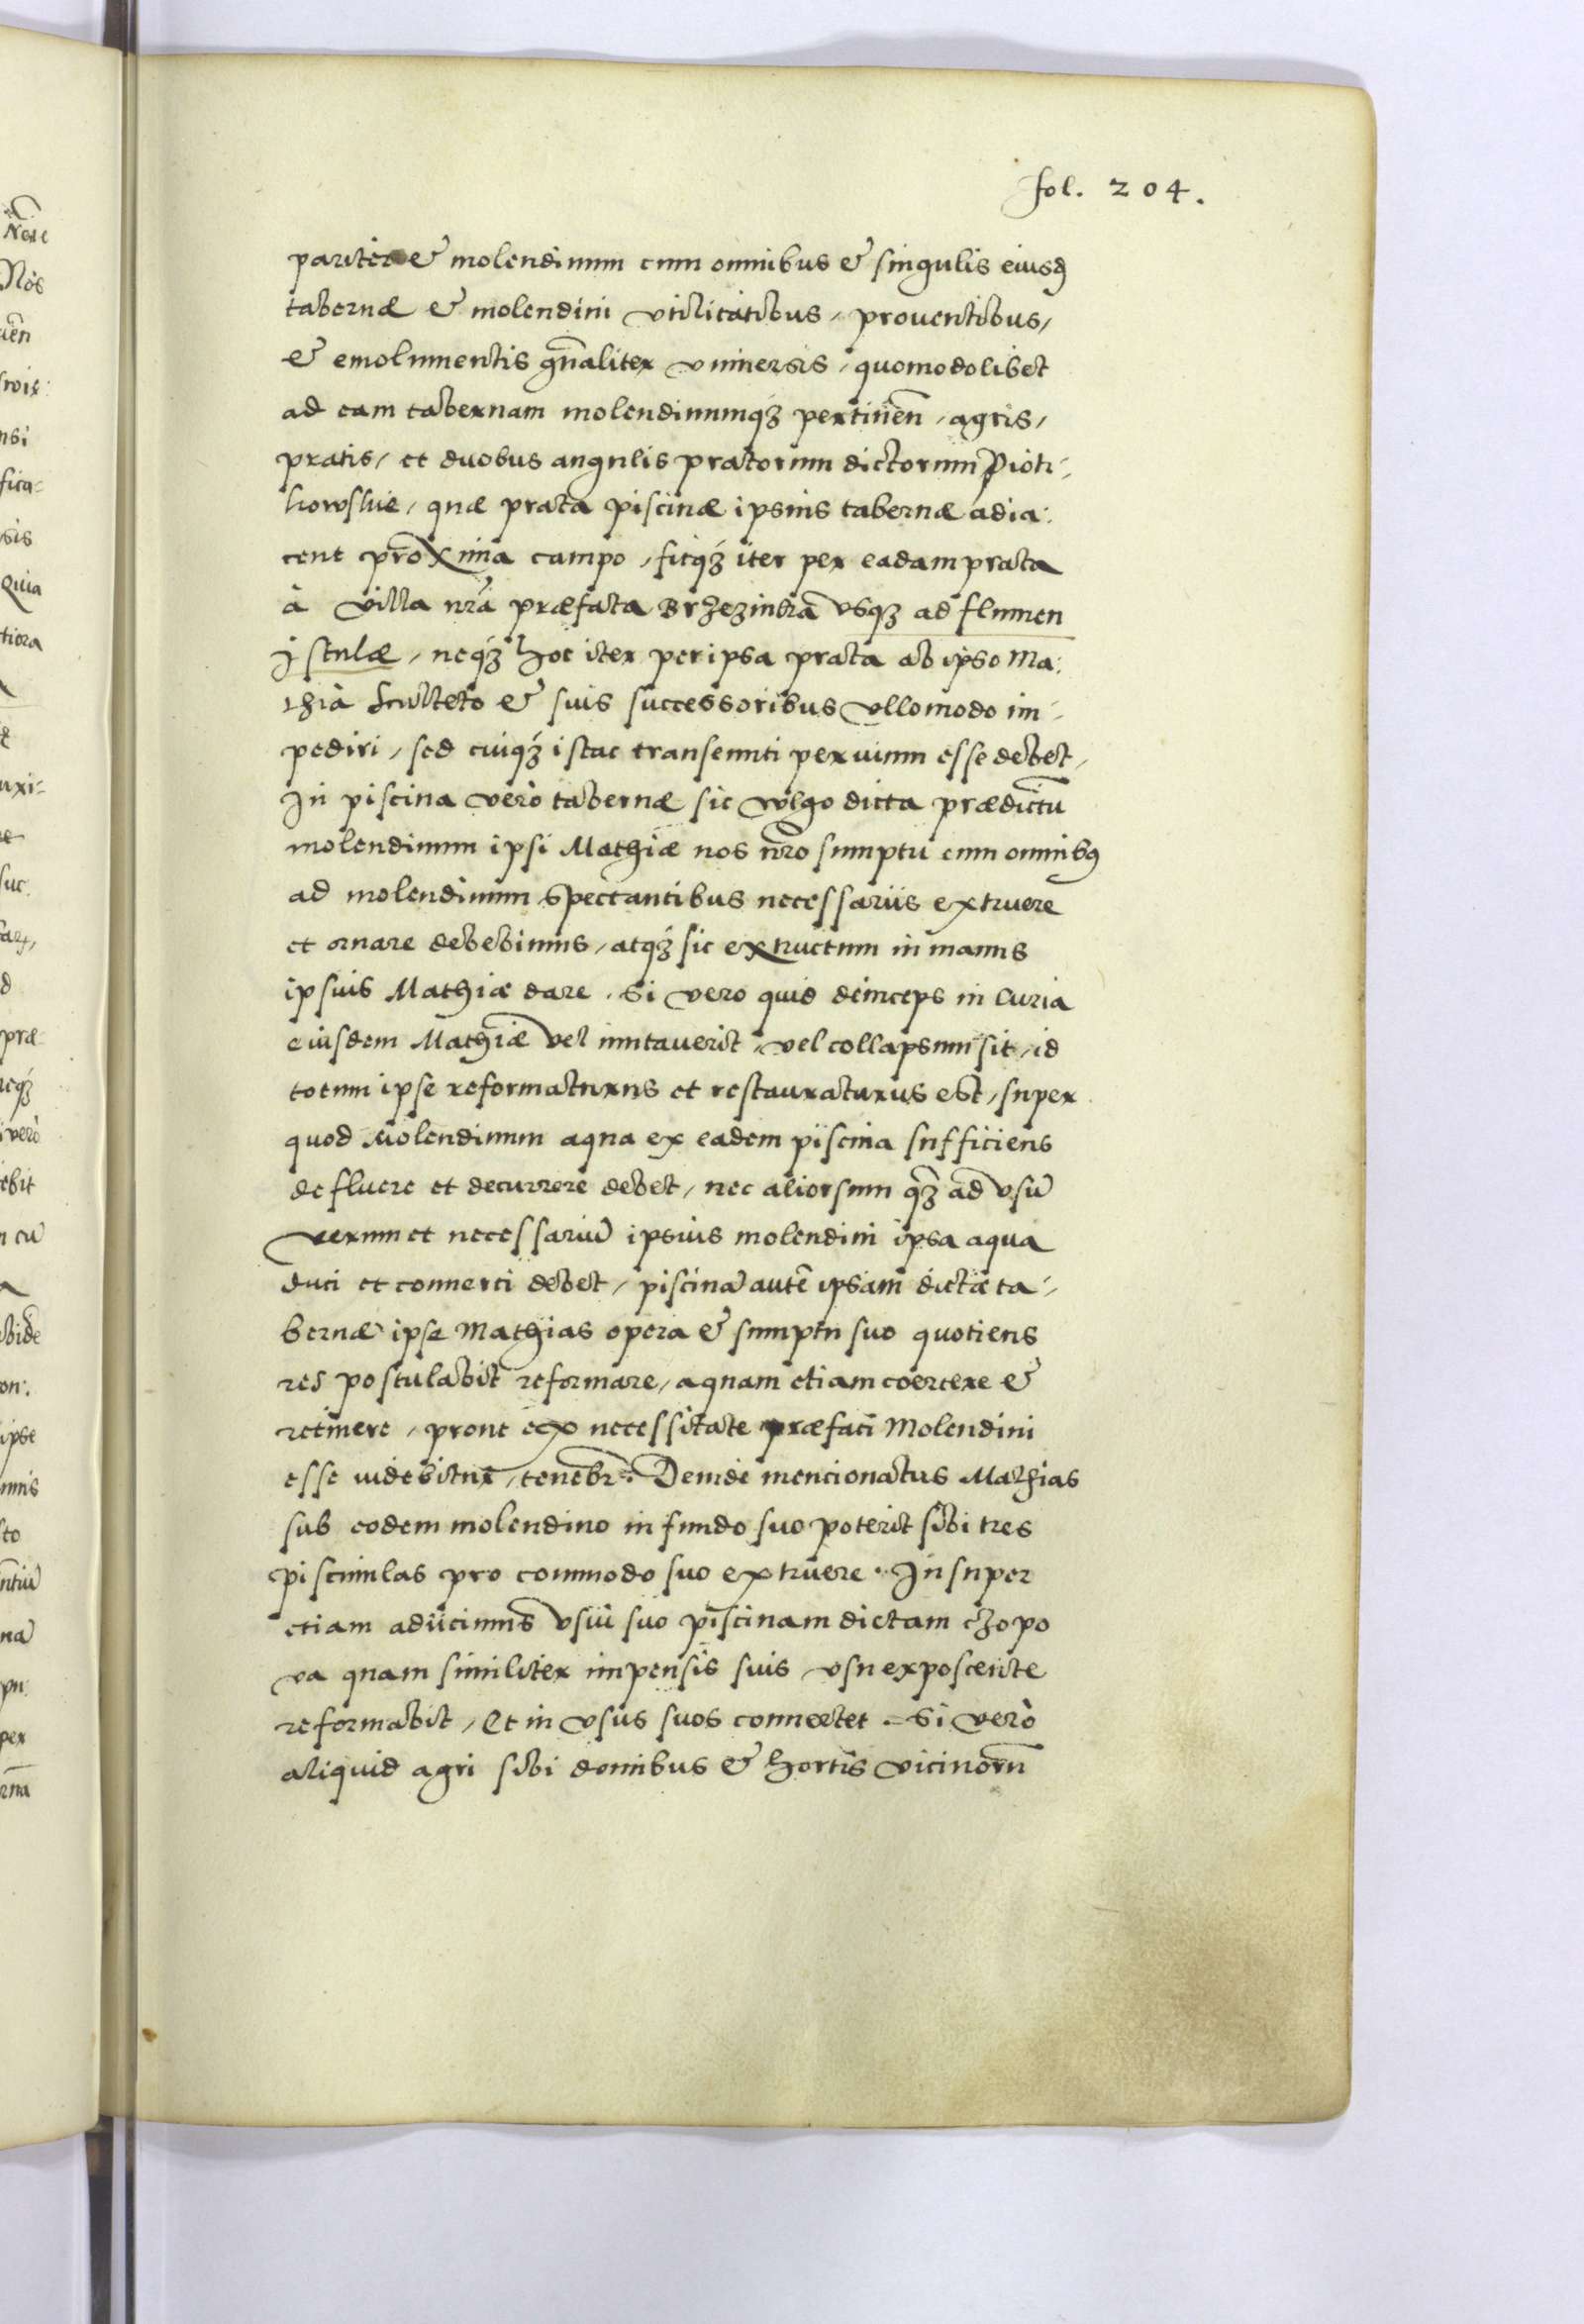 fol. 204.
pariter & molendinum cum omnibus & singulis eiusđ
tabernæ & molendini vtilitatibus, prouentibus,
& emolumentis gn̄aliter vniuersis, quomodolibet
ad eam tabernam molendinumqʒ pertineñ, agris,
pratis, et duobus angulis pratorum dictorum Piotr-
kowskie, quæ prata piscinæ ipsius tabernæ adia:
cent proxima campo, fitqʒ iter per eadam prata
à villa nrã præfata Brzezinka vsqʒ ad flumen
Istulæ, neqʒ hoc iter per ipsa prata ab ipso Ma:
thia Sculteto & suis successoribus vllo modo im-
pediri, sed cuiqʒ istac transeunti peruium esse debet,
In piscina verò tabernæ sic vulgo dicta prædictũ
molendinum ipsi Mathiæ nos nr̃o sumptu cum omnibꝰ
ad molendinum spectantibus necessariis extruere
et ornare debebimus, atqʒ sic extructum in manus
ipsius Mathiæ dare. Si vero quid deinceps in Curia
eiusdem Mathiæ vel mutauerit, vel collapsum sit, id
totum ipse reformaturus et restauraturus est, super
quod Molendinum aqua ex eadem piscina sufficiens
defluere et decurrere debet, nec aliorsum qʒ̃ ad vsũ
verum et necessariũ ipsius molendini ipsa aqua
duci et conuerti debet, piscinã autẽ ipsam dictæ ta-
bernæ ipse Mathias opera & sumptu suo quotiens
res postulabit reformare, aquam etiam coercere &
retinere, prout ex necessitate præfati Molendini
esse uidebitur, tenebr̃. Deinde mencionatus Mathias
sub eodem molendino in fundo suo poterit sibi tres
piscinulas pro commodo suo extruere. Insuper
etiam adiicimus vsui suo piscinam dictam chopo
va quam similiter impensis suis vsu exposcente
reformabit, Et in vsus suos conuertet. Si verò
aliquid agri sibi domibus & hortis vicinorũ